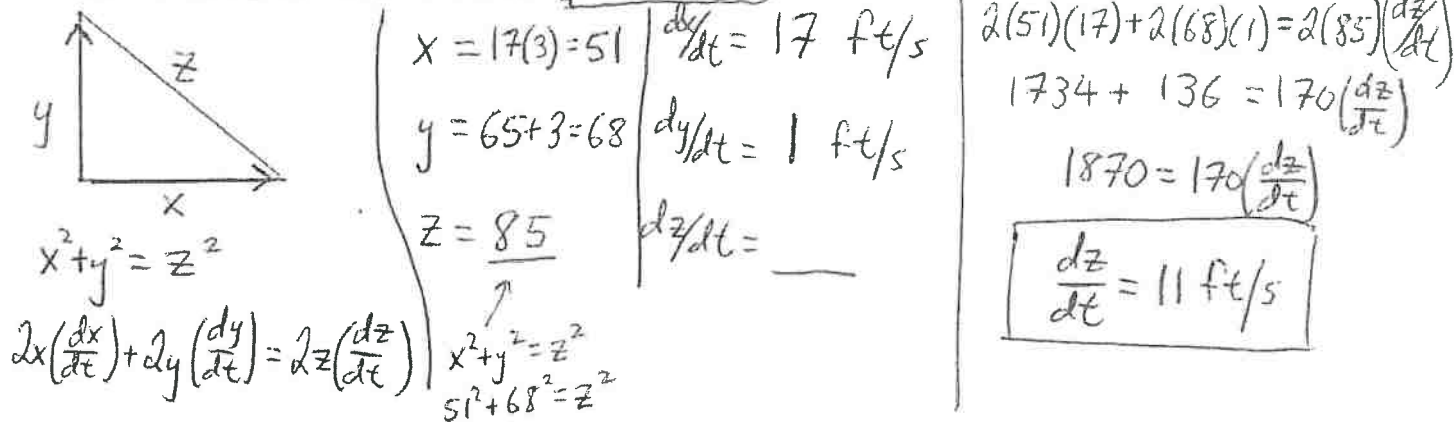 z
y
x
x²+y²=z²
2x(dx/dt)+2y(dy/dt)=2z(dz/dt)
x = 17(3)=51
y = 65+3=68
z = 85
x²+y²=z²
51²+68²=z²
dx/dt = 17 ft/s
dy/dt = 1 ft/s
dz/dt = ___
2(51)(17)+2(68)(1)=2(85)(dz/dt)
1734 + 136 = 170(dz/dt)
1870 = 170(dz/dt)
dz/dt = 11 ft/s